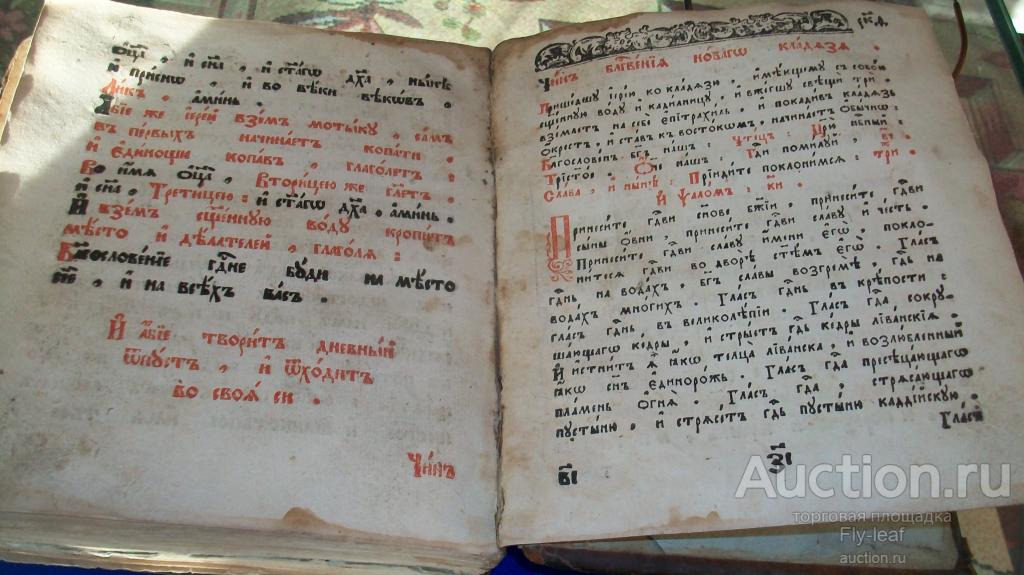 ѻц҃а , и҆ сн҃а , и҆ ст҃агѡ дх҃а , нынѣ
и҆ присно , и҆ во вѣки вѣкѡвъ .
Ликъ . а҆минь .
А҆бїе же і҆ерей взе́мъ мотыку , самъ
въ первыхъ начинаетъ копати .
и҆ є҆диною копавъ , глаголетъ :
Во и҆мя ѻц҃а . Вторицею же гл҃етъ .
и҆ сн҃а . Третицею : и҆ ст҃агѡ дх҃а . а҆минь .
И҆ взе́мъ сщ҃енную воду кропитъ
мѣсто и҆ дѣлателей , глаголя :
Бл҃гословенїе гд҃не буди на мѣсто
се , и҆ на всѣхъ васъ .
И҆ а҆бїе творитъ дневный
ѿпустъ , и҆ ѿходитъ
во своя си .
Чинъ
Чинъ бл҃гвенїя новагѡ кладязя .
Пришедшу і҆ерею ко кладязю , и҆мѣющиму съ собою
сщ҃енную воду и҆ кадилницу , и҆ вжегшу свѣщи три .
вземлетъ на себѣ є҆пітрахиль , и҆ покадивъ кладязь
ѻкрестъ , и҆ ставъ къ востокѡмъ , начинаетъ ѻбычнѡ :
Бл҃гословенъ бг҃ъ нашъ :
Трист҃ое . Ѻч҃е нашъ : Гд҃и помилуй , в҃і
Слава , и҆ нынѣ : Прїидите поклонимся : три .
И҆ ѱаломъ : к҃и .
Принесите гд҃еви сн҃ове бж҃їи , принесите гд҃еви
сыны ѻвни , принесите гд҃еви славу и҆ честь .
Принесите гд҃еви славу и҆мени є҆гѡ , покло-
нитеся гд҃еви во дворѣ ст҃ѣмъ є҆гѡ . Гласъ
гд҃нь на водахъ , бг҃ъ славы возгремѣ , гд҃ь на
водахъ многихъ . Гласъ гд҃нь въ крѣпости :
гласъ гд҃нь , въ великолѣпїи . Гласъ гд҃а сокру-
шающагѡ кедры , и҆ стрыетъ гд҃ь кедры лїванскїя .
И҆ истнитъ я҆ ꙗкѡ телца лїванска , и҆ возлюбленный
ꙗкѡ сн҃ъ є҆динорожь . Гласъ гд҃а пресѣцающагѡ
пламень ѻгня . Гласъ гд҃а , стрясающагѡ
пустыню . и҆ стрясетъ гд҃ь пустыню каддійскую .
Гласъ
в҃і
з҃і
Auction.ru
торговая площадка
Fly-leaf
auction.ru